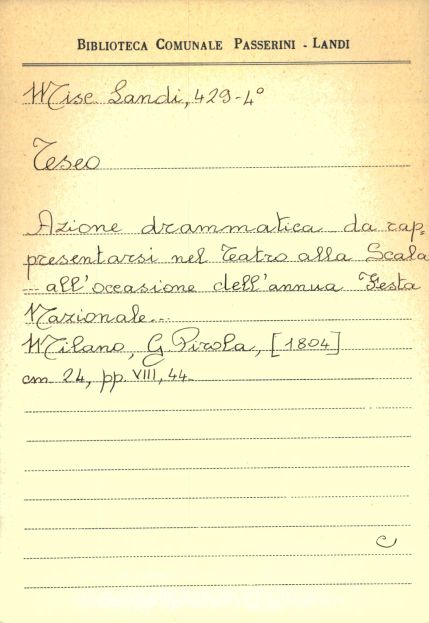 BIBLIOTECA COMUNALE PASSERINI - LANDI
Misc Landi, 429-4°
Teseo
Azione drammatica da rap=
presentarsi nel Teatro alla Scala
... all'occasione dell'annua Festa
Nazionale...
Milano, G Pirola, [1804]
cm 24, pp. VIII, 44.
C